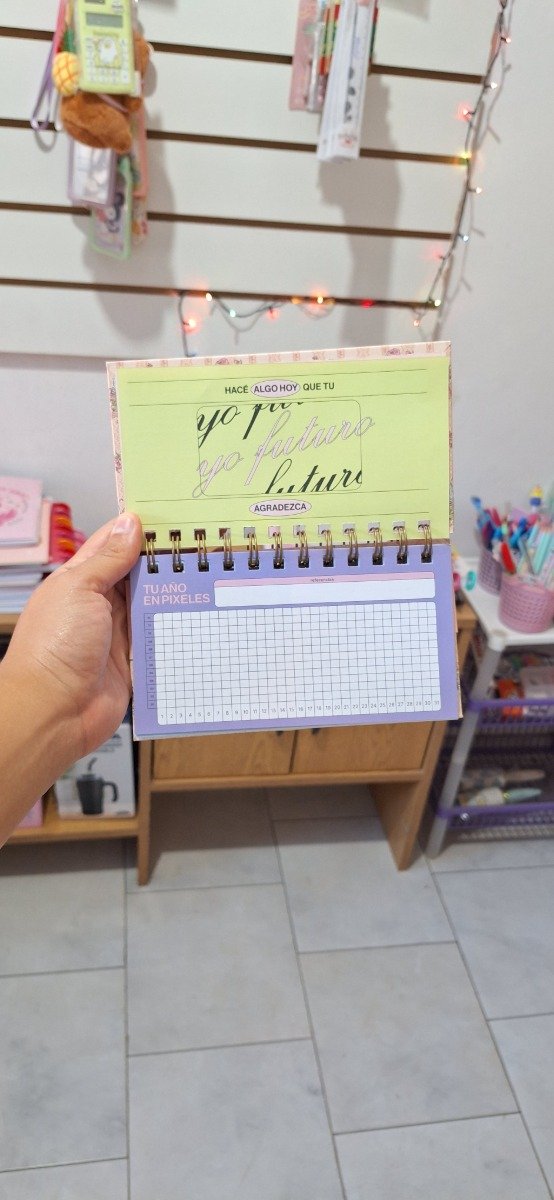 HACÉ ALGO HOY QUE TU
yo futuro
yo futuro
futuro
AGRADEZCA
TU AÑO
EN PIXELES
referencias
1 2 3 4 5 6 7 8 9 10 11 12 13 14 15 16 17 18 19 20 21 22 23 24 25 26 27 28 29 30 31